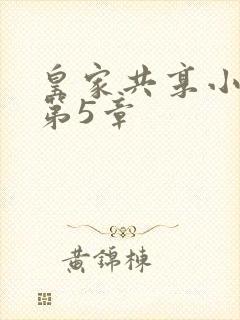 皇家共享小
第5章
黄锦栋